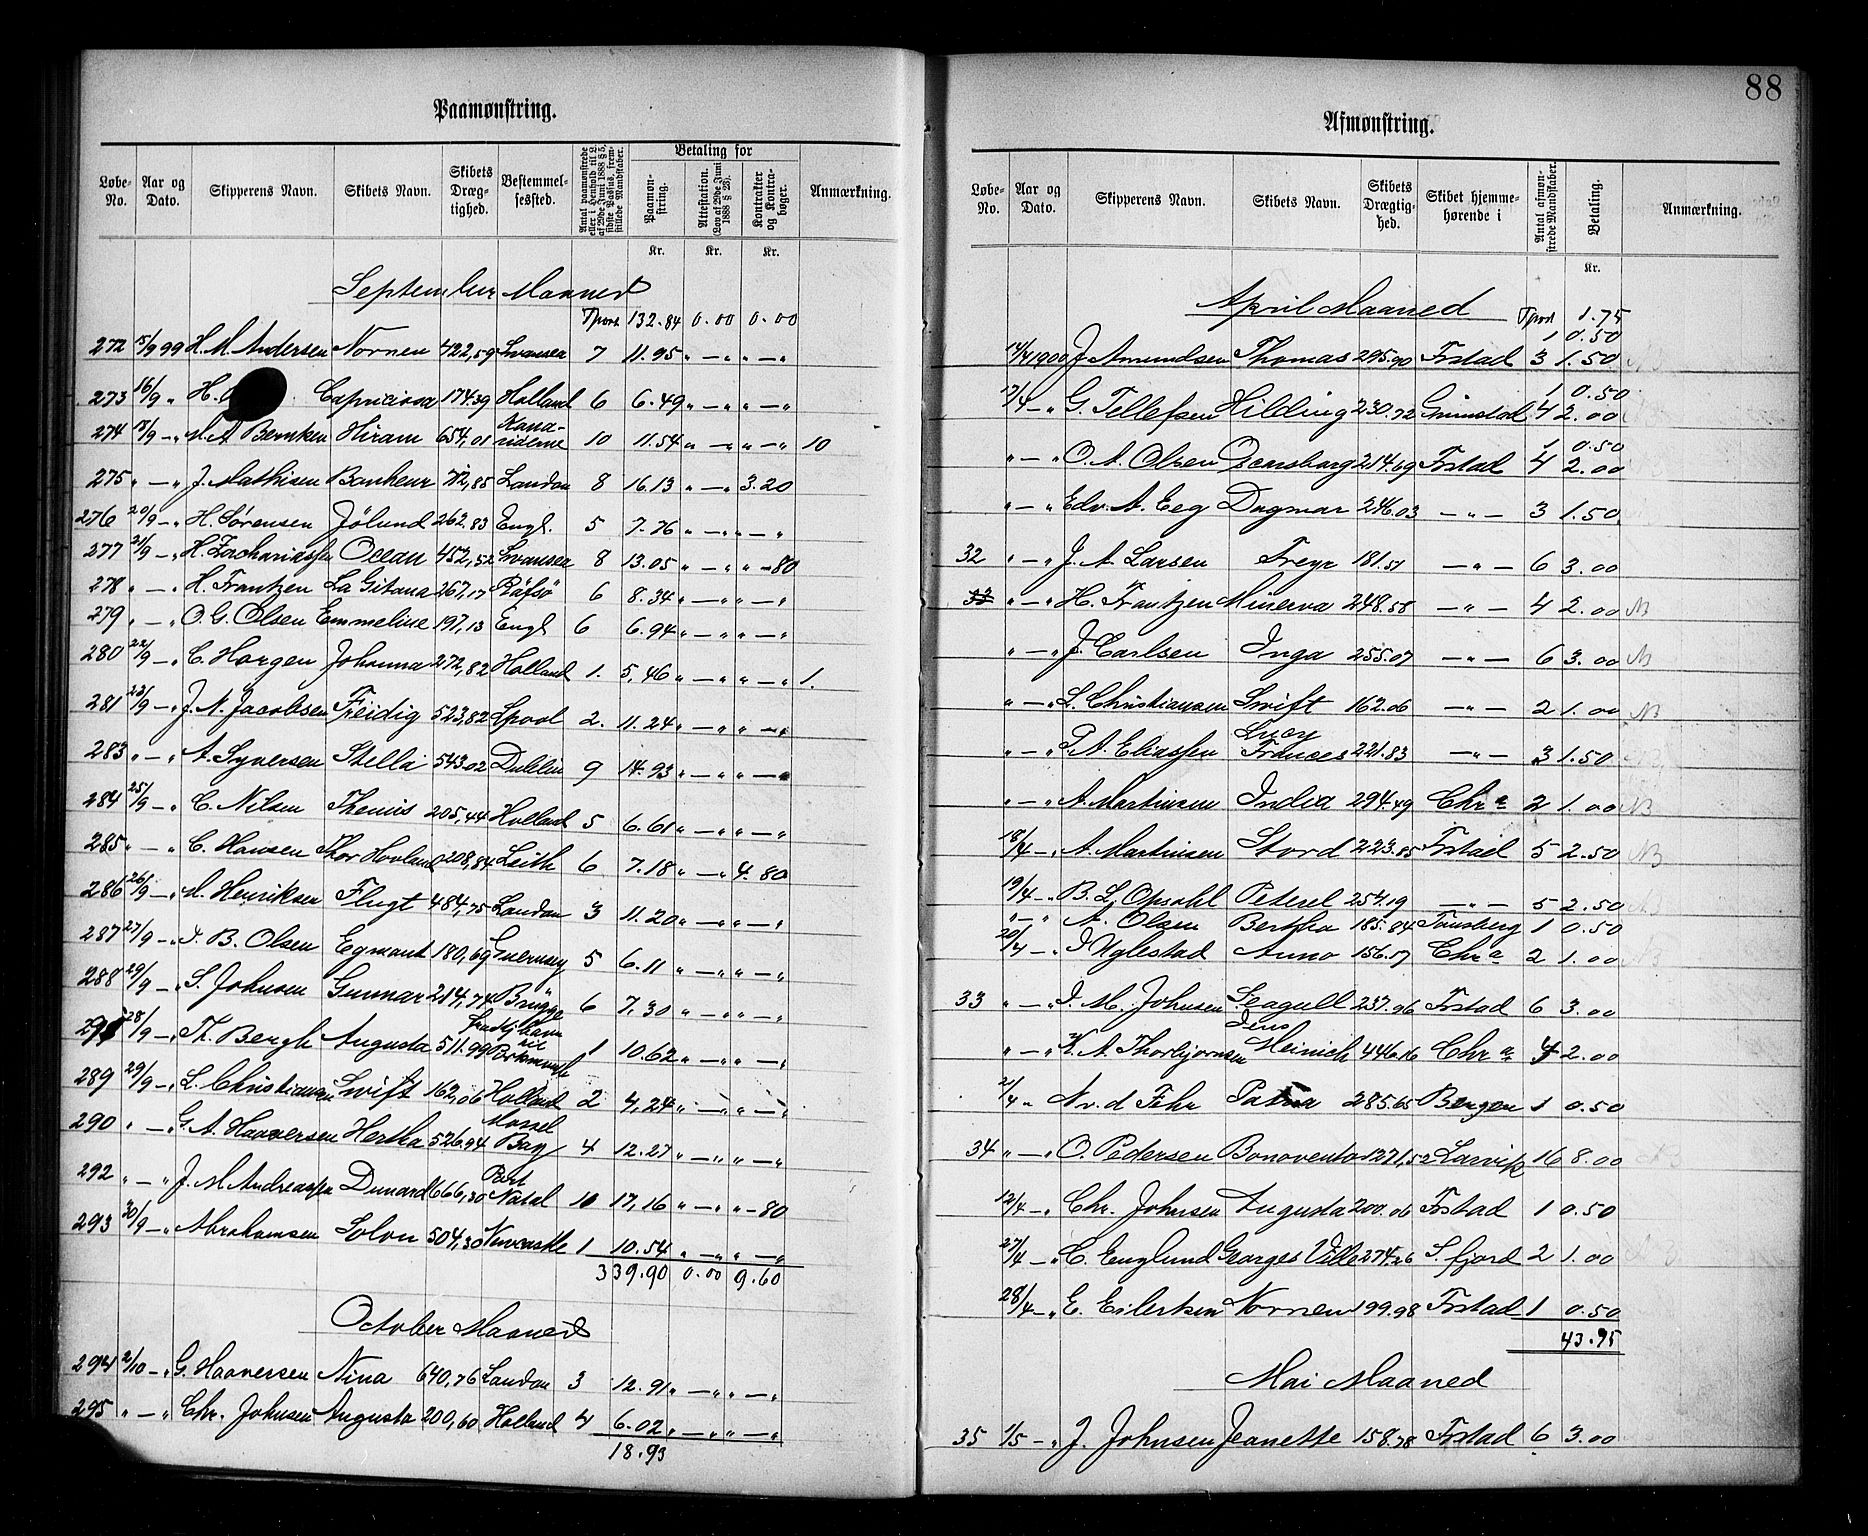 88
Paamønstring.
Løbe-No. Aar og Dato. Skipperens Navn. Skibets Navn. Skibets Dræg-tighed. Bestemmel-sessted. Antal paamønstrede eller i Henhold til L. af 29de Juni 1888 § 5, sidste Passus, frem-stillede Mandstaber. Betaling for Paamøn-string. Attestation. (Lov af 29de Juni 1888 § 26). Kontrakter og Kontra-bøger. Anmærkning.
Kr. Kr. Kr.
September Maaned
Tport 132.84 0.00 0.00
272 15/9 99 H. M. Andersen Nornen 422,59 Swansea 7 11.95 " — " " — "
273 16/9 " H. Capricciosa 174.39 Holland 6 6.49 " — " " — "
274 18/9 — " M. A Bernken Hiram 654,01 Kana-riderne 10 11.54 " — " " — " 10
275 " — " J. Mathisen Banheur 712,85 London 8 16.13 " — " 3.20
276 20/9 — " H. Sørensen Jölund 262.83 Engl. 5 7.76 " — " " — "
277 21/9 — " H. Zachariassen Ocean 452,52 Swansea 8 13.05 " — " " — 80
278 " — " H. Frantzen La Gitana 267,17 Räfsö 6 8.34 " — " " — "
279 " — " O. G. Olsen Emmeline 197,13 Engl 6 6.94 " — " " — "
280 22/9 — " C. Horgen Johanna 272,82 Holland 1. 5,46 " — " " — " 1.
281 23/9 — " J. N. Jacobsen Freidig 523,82 Lpool 2. 11.24 " — " " — "
283 " — " A. Syversen Stella 543.02 Dublin 9 14.93 " — " " — "
284 25/9 — " C. Nilsen Themis 205,44 Holland 5 6.61 " — " " — "
285 " — " C. Hansen Thor Hovland 208,84 Leith 6 7.18 " — " 4.80
286 26/9 — " M. Henriksen Flugt 484,75 London 3 11.20 " — " " — "
287 27/9 — " I. B. Olsen Egmont 180,69 Guernsey 5 6.11 " — " " — "
288 29/9 — " S. Johnsen Gunnar 214,74 Brügge 6 7,30 " — " " — "
291 28/9 — " Th. Bergh Augusta 511.99 1 10.62 " — " " — "
289 29/9 — " L. Christiansen Swift 162,06 Holland 2 4,24 " — " " — "
290 " — " G. A. Haaversen Hertha 526,94 Mossel Bay 4 12.27 " — " " — "
292 " — " J. M Andreassen Dunard 666,30 Port Natal 10 17,16 " — " " — 80
293 30/9 — " Abrahamsen Solon 504,30 Newcastle 1 10.54 " — " " — "
339.90 0.00 9.60
October Maaned
294 2/10 — " G. Haaversen Nina 640,76 London 3 12.91 " — " " — "
295 " — " Chr. Johnsen Augusta 200,60 Holland 4 6.02 " — " " — "
18.93
Afmønstring.
Løbe-No. Aar og Dato. Skipperens Navn. Skibets Navn. Skibets Drægtig-hed. Skibet hjemme-hørende i Antal afmøn-strede Mandstaber. Betaling. Anmærkning.
Kr.
April Maaned Tport 1.75
1 0.50
14/4 1900 J. Amundsen Thomas 295.90 Frstad 3 1.50
1 0.50
17/4 — " G. Tellefsen Hilding 230.72 Grimstad 4 2.00
1 0.50
" — " O. A. Olsen Oscarsborg 214.69 Frstad 4 2.00
" — " Edv. A. Eeg Dagmar 246.03 — " — 3 1.50
32 " — " J. A. Larsen Freyr 181.51 — " — 6 3.00
33 " — " H. Frantzen Minerva 248.58 — " — 4 2.00 NB
" — " J. Carlsen Inga 255.07 — " — 6 3.00 NB
" — " L. Christiansen Swift 162.06 — " — 2 1.00 NB
" — " P. A. Eliassen Lucy Frances 221.83 — " — 3 1.50 NB
" — " A. Martinsen India 294.49 Chr a 2 1.00 NB
18/4 — " A. Martinsen Stord 223.85 Frstad 5 2.50 NB
19/4 — " B. L. Opsahl Peterel 254.19 — " — 5 2.50 NB
" — " A. Olsen Bertha 185.84 Tønsberg 1 0.50
20/4 — " I Uglestad Anno 156.17 Chr a 2 1.00
33 " — " I. M. Johnsen Seagull 237.96 Frstad 6 3.00
" — " K. A. Thorbjørnsen Jens Meinich 446.16 Chr a 4 2.00
21/4 — " A. v. d Fehr 285.65 Bergen 1 0.50
34 " — " O. Pedersen Bonovento 1271,52 Larvik 16 8.00 NB
12/4 — " Chr. Johnsen Augusta 200.06 Frstad 1 0.50
27/4 — " C. Englund Georges Ville 274.26 S. fjord 2 1.00
28/4 — " E. Eilertsen Nornen 199.98 Frstad 1 0.50
43.95
Mai Maaned
35 1/5 — " J. Johnsen Jeanette 158.78 Frstad 6 3.00